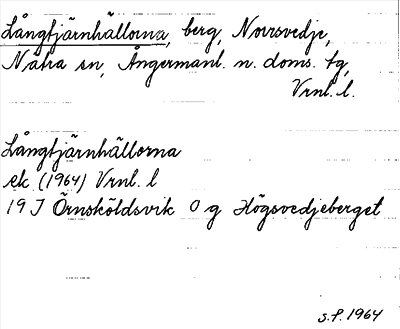 Långtjärnhällorna, berg, Norrsvedje,
Nätra sn, Ångermanl. n. doms. tg,
Vrnl. l.
Långtjärnhällorna
ek (1964) Vrnl. l
19 J Örnsköldsvik O g Högsvedjeberget
S.P. 1964